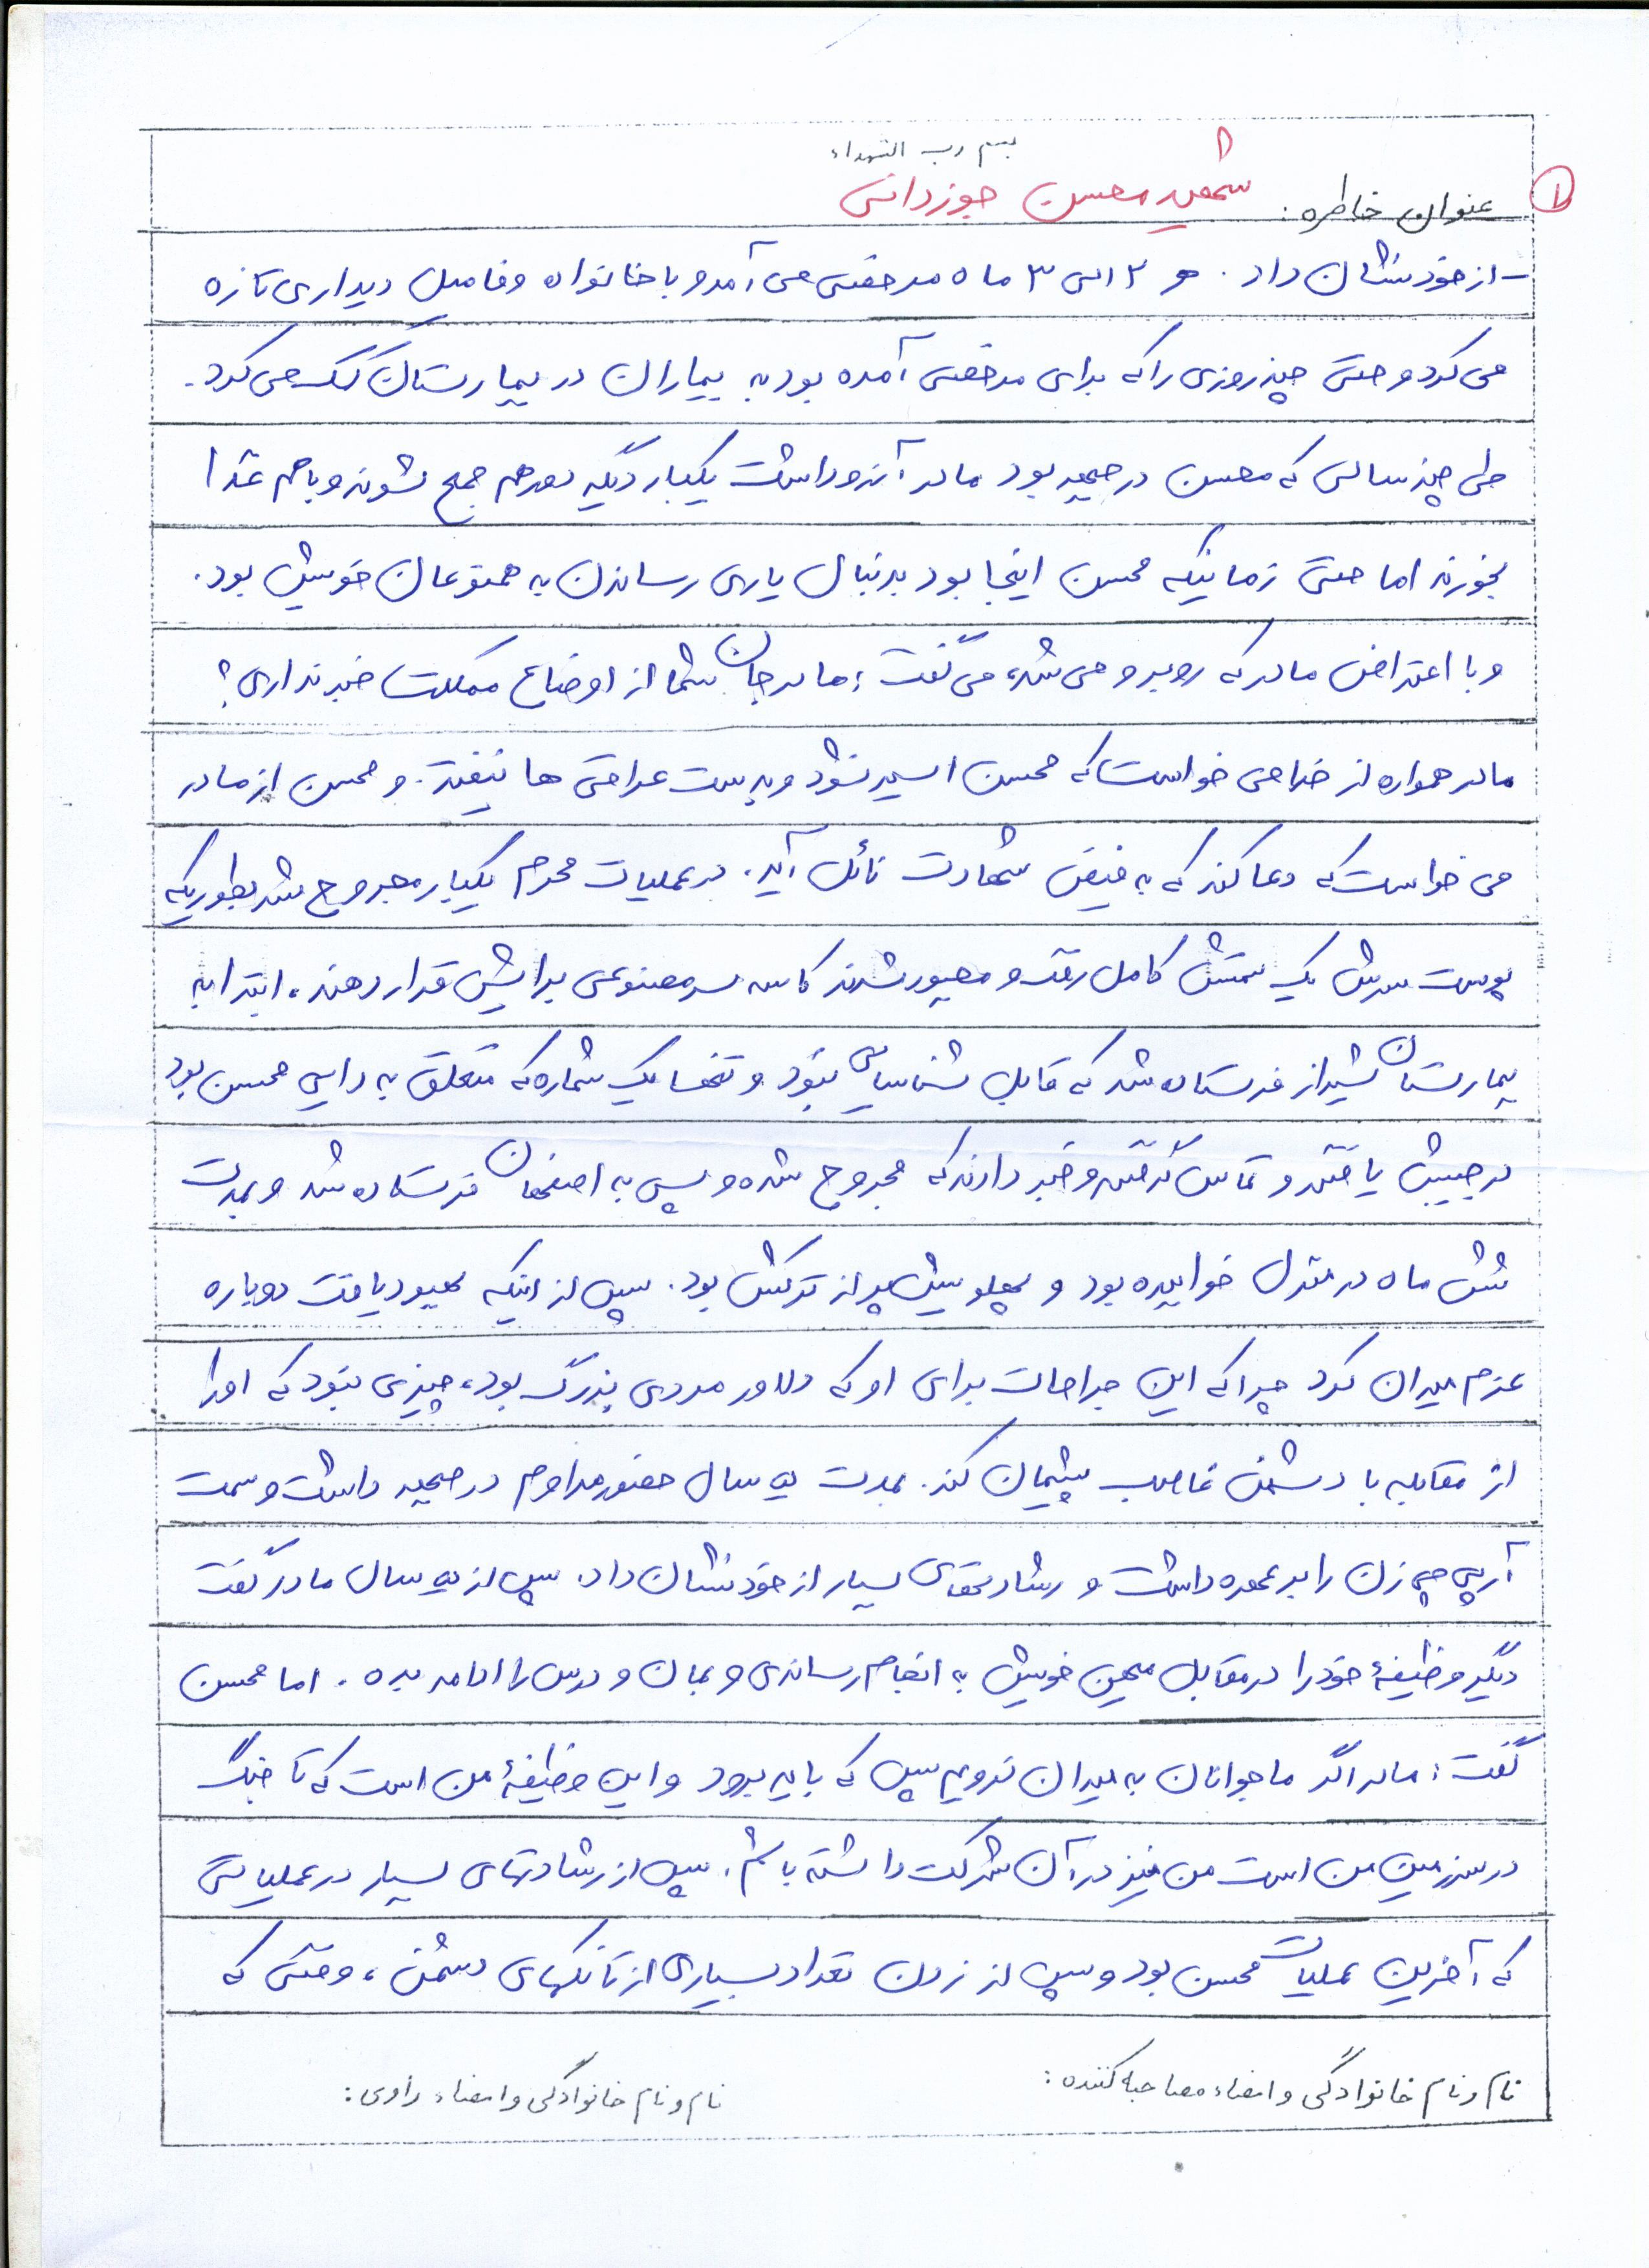 بسم رب الشهداء
۱
عنوان خاطره: شهید محسن جوزدانی
- از خود نشان داد. هر ۲ الی ۳ ماه مرخصی می آمد و با خانواده و فامیل دیداری تازه
می کرد و حتی چند روزی را که برای مرخصی آمده بود به بیماران در بیمارستان کمک می کرد.
طی چند سالی که محسن در جبهه بود مادر آرزو داشت یکبار دیگه دور هم جمع شوند و با هم غذا
بخورند اما حتی زمانیکه محسن اینجا بود بدنبال یاری رساندن به همنوعان خویش بود.
و با اعتراض مادر که روبرو می شد، می گفت: مادر جان شما از اوضاع مملکت خبر نداری؟
مادر همواره از خدا می خواست که محسن اسیر نشود و بدست عراقی ها نیفتد. و محسن از مادر
می خواست که دعا کند که به فیض شهادت نائل آید. در عملیات محرم یکبار مجروح شد بطوریکه
پوست سرش یک سمتش کامل رفت و مجبور شدند کاسه سر مصنوعی برایش قرار دهند، ابتدا به
بیمارستان شیراز فرستاده شد که قابل شناسایی نبود و تنها یک شماره که متعلق به دایی محسن بود
در جیبش یافتند و تماس گرفتند و خبر دادند که مجروح شده و سپس به اصفهان فرستاده شد و بمدت
شش ماه در منزل خوابیده بود و پهلویش پر از ترکش بود. سپس از اینکه بهبود یافت دوباره
عزم میدان کرد چرا که این جراحات برای او که دلاور مردی بزرگ بود، چیزی نبود که او را
از مقابله با دشمن غاصب پشیمان کند. بمدت سال حضور مداوم در جبهه داشت و سمت
آرپی جی زن را بر عهده داشت و رشادتهای بسیار از خود نشان داد. سپس از سال مادر گفت
دیگر وظیفهٔ خود را در مقابل میهن خویش به انجام رساندی و بمان و درس را ادامه بده. اما محسن
گفت: مادر اگر ما جوانان به میدان نرویم پس که باید برود و این وظیفهٔ من است که تا جنگ
در سرزمین من است من نیز در آن شرکت داشته باشم. سپس از رشادتهای بسیار در عملیاتی
که آخرین عملیات محسن بود و سپس از زدن تعداد بسیاری از تانکهای دشمن، وقتی که
نام و نام خانوادگی و امضاء مصاحبه کننده:
نام و نام خانوادگی و امضاء راوی: